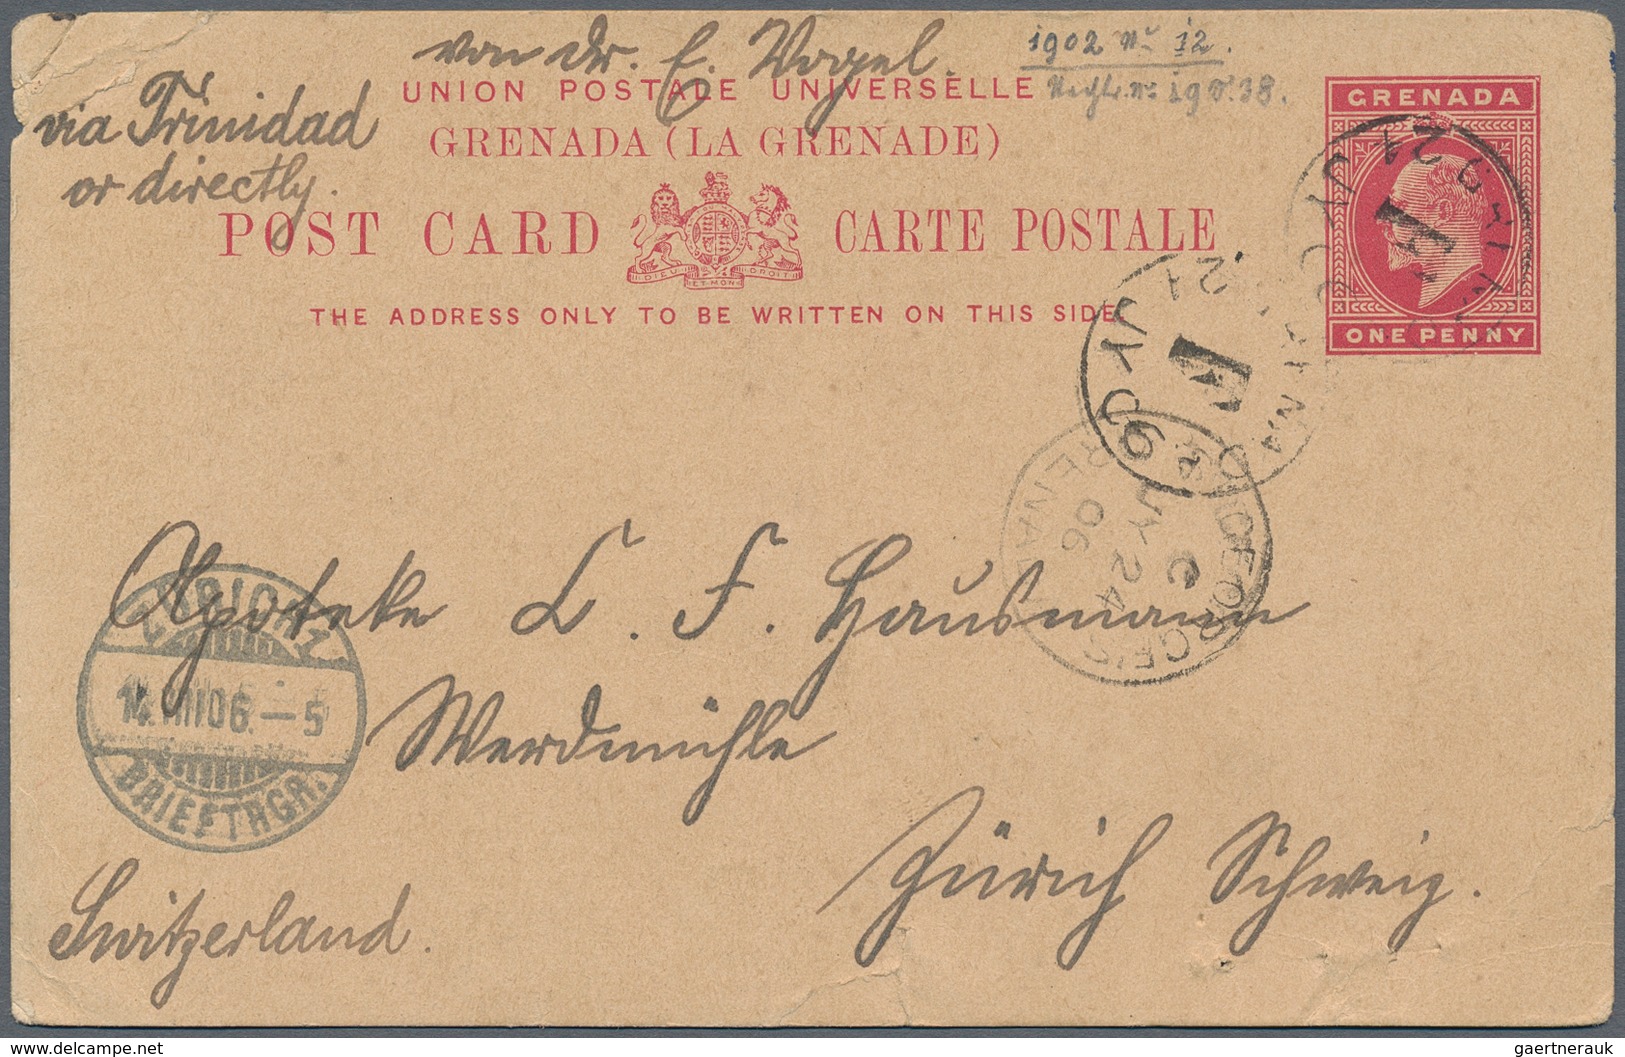 von Dr. E. Vogel.
1902 No 12.
via Trinidad
or directly.
UNION POSTALE UNIVERSELLE
GRENADA (LA GRENADE)
POST CARD CARTE POSTALE
DIEU ET MON DROIT
THE ADDRESS ONLY TO BE WRITTEN ON THIS SIDE
GRENADA
ONE PENNY
21
JY 06
21
JY 06
GRENADA
C
JY 24
06
Apoteke C. F. Hausmann
Werdmühle
Zürich Schweiz.
Switzerland.
ZÜRICH 1
14.VIII 06.–5
BRIEFTRGR.
gaertnerauk
delcampe.net